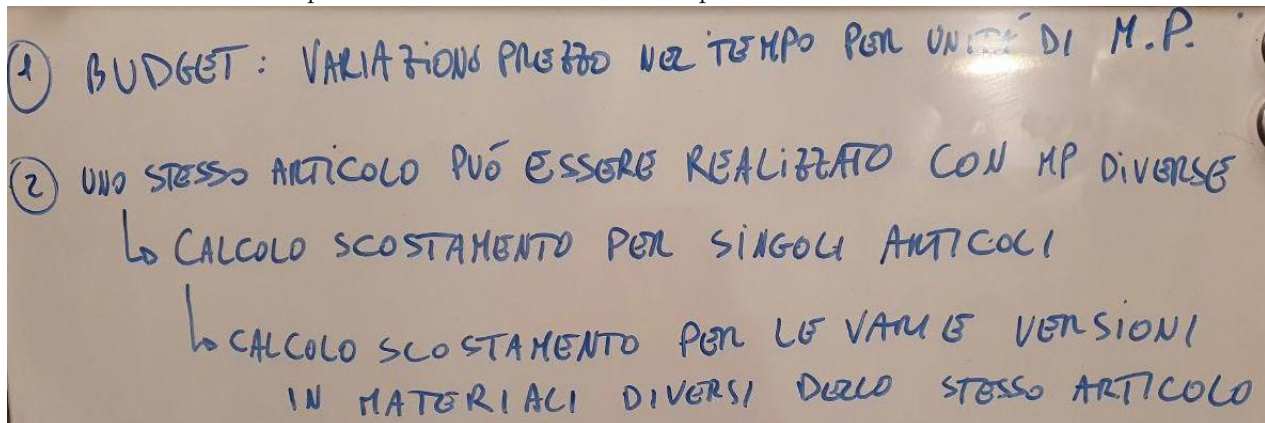 ① BUDGET: VARIAZIONE PREZZO NEL TEMPO PER UNITÁ DI M.P.
② UNO STESSO ARTICOLO PUÓ ESSERE REALIZZATO CON MP DIVERSE
↳ CALCOLO SCOSTAMENTO PER SINGOLI ARTICOLI
↳ CALCOLO SCOSTAMENTO PER LE VARIE VERSIONI
IN MATERIALI DIVERSI DELLO STESSO ARTICOLO